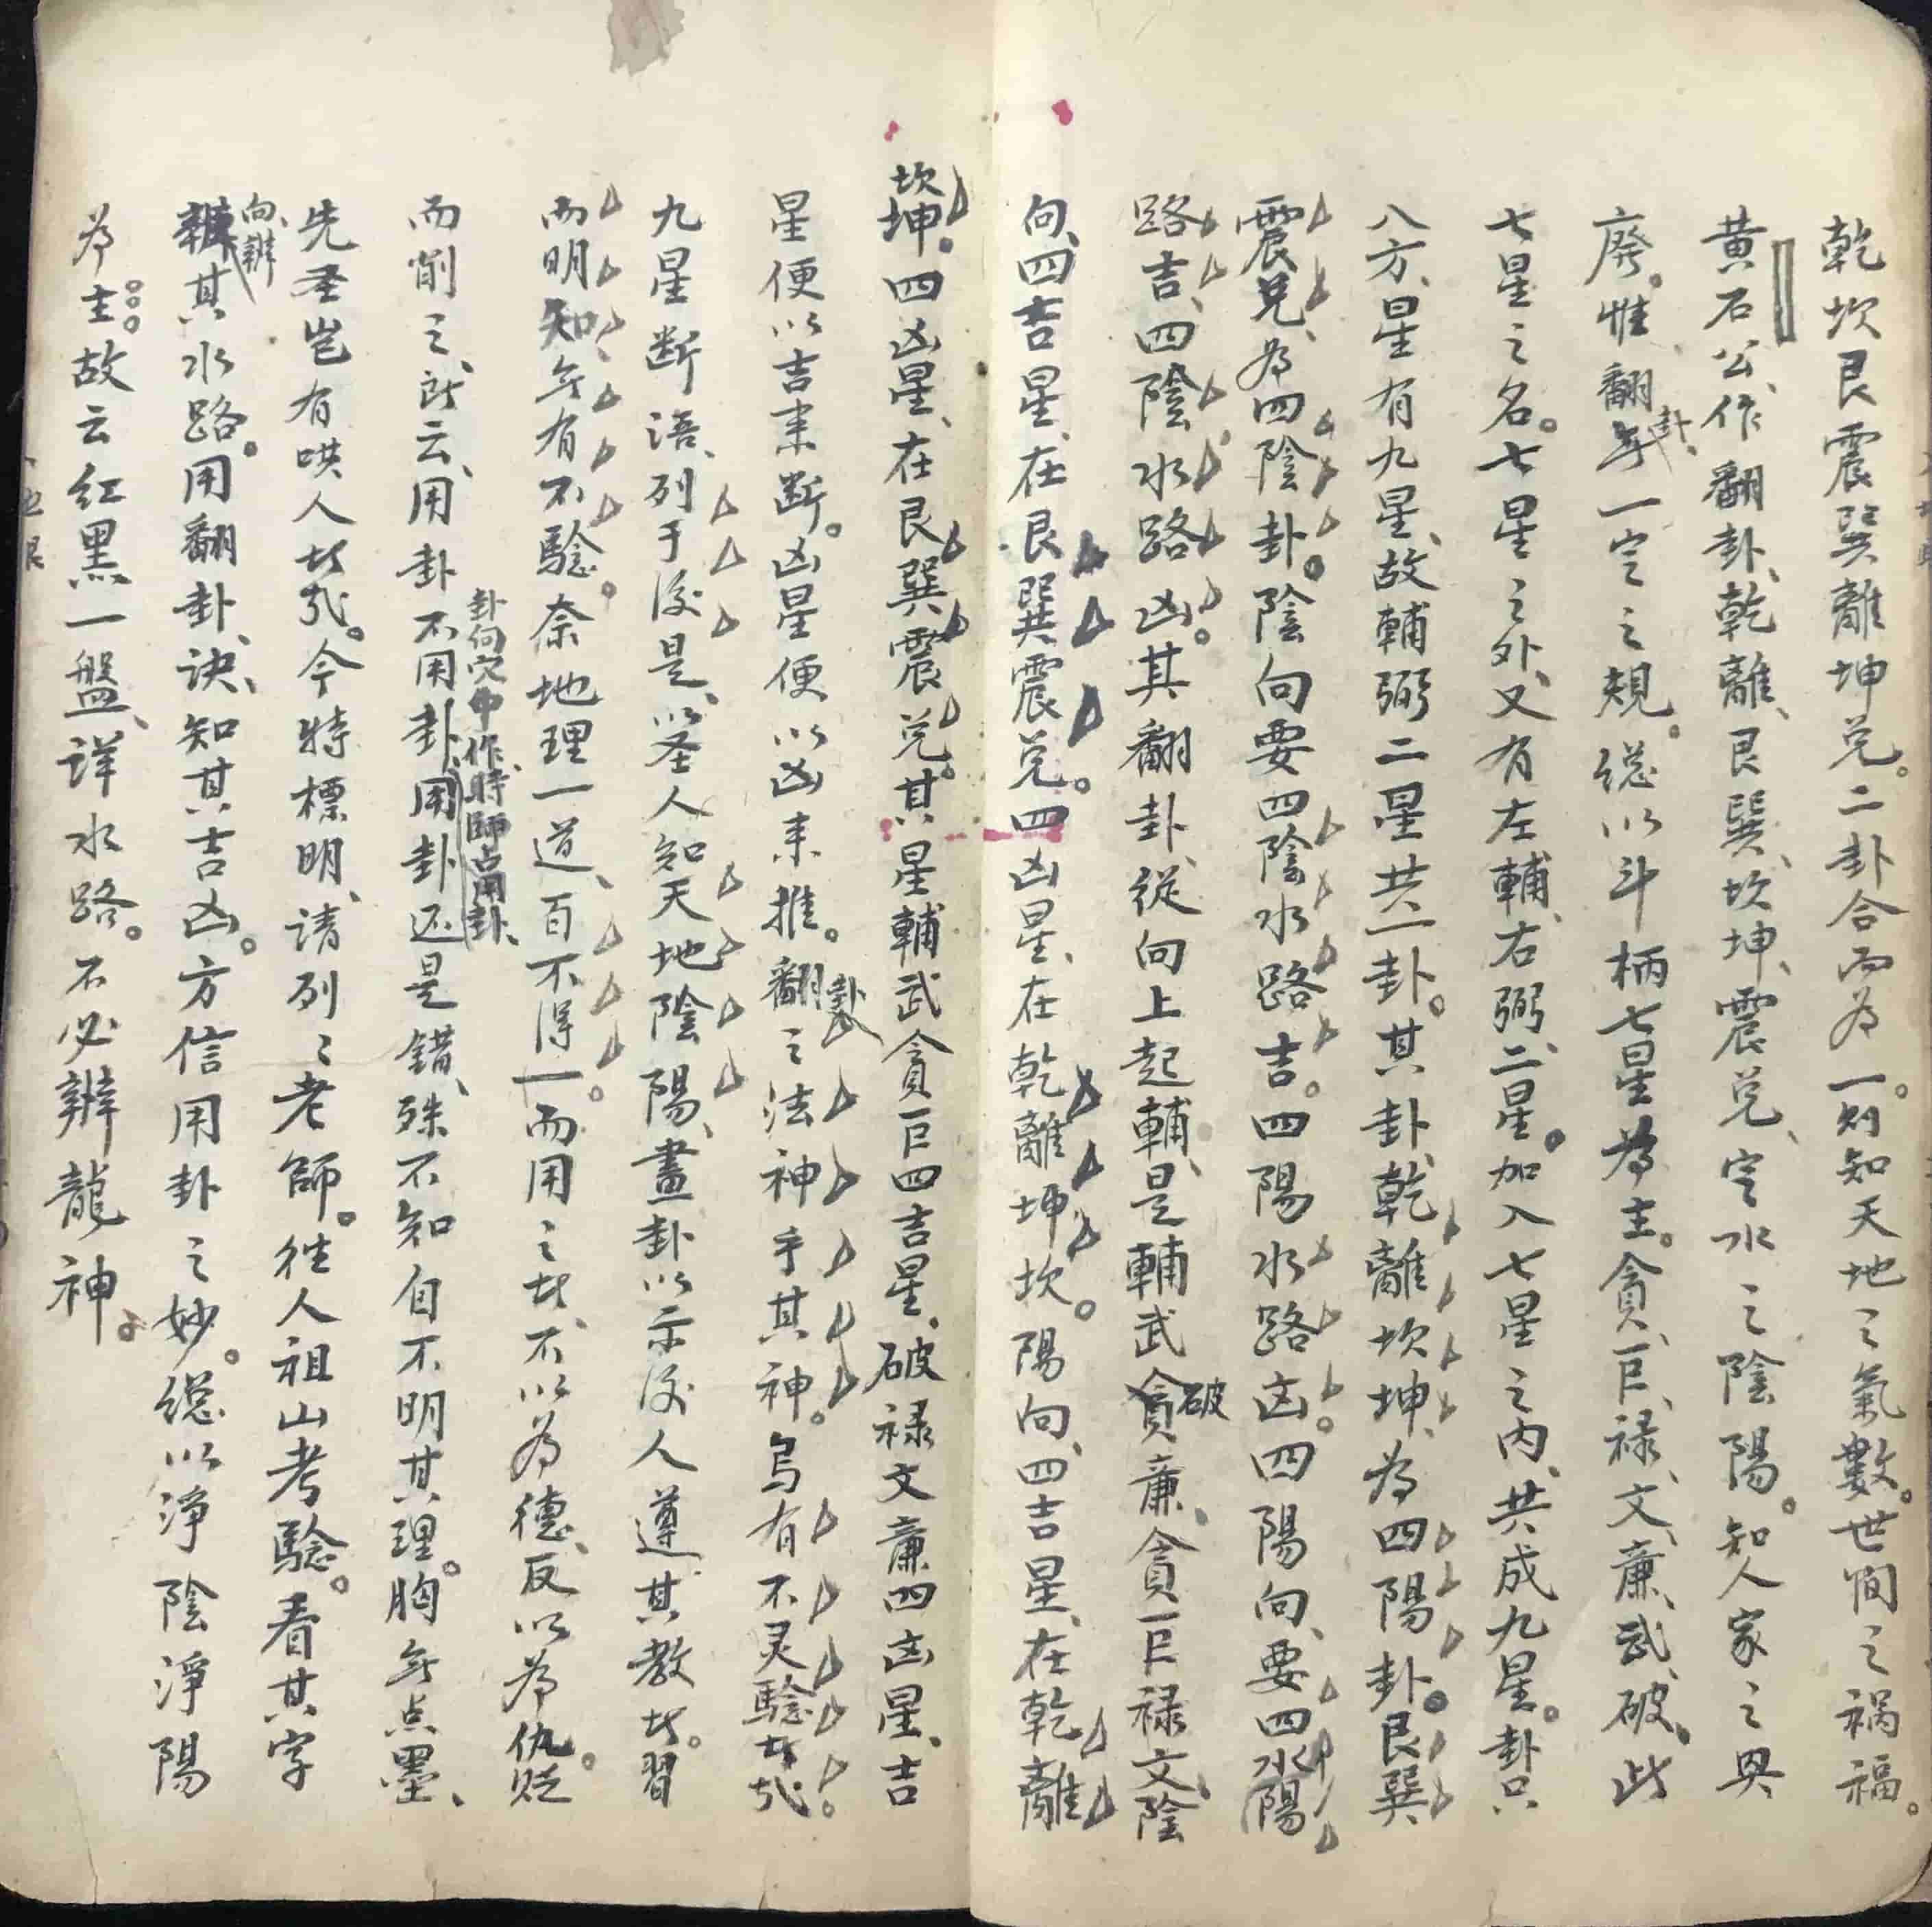 乾坎艮震巽離坤兌。二卦合而为一。则知天地之氣數。世间之祸福。
黄石公、作翻卦、乾離、艮巽、坎坤、震兌、定水之陰陽。知人家之興
廃。惟翻卦、年一定之規。総以斗柄七星為主。貪、巨、禄、文、廉、武、破、此
七星之名。七星之外、又有左輔、右弼、二星。加入七星之内、共成九星。卦只
八方、星有九星、故輔弼二星共一卦。其卦、乾離坎坤、为四陽卦。艮巽
震兌、为四陰卦。陰向要四陰水路吉。四陽水路凶。四陽向、要四水陽
路吉、四陰水路凶。其翻卦、從向上起輔、是輔武貪破廉、貪巨禄文、陰
向、四吉星、在艮巽震兌。四凶星、在乾離坤坎。陽向、四吉星、在乾離
坎坤。四凶星、在艮巽震兌。其星輔武貪巨四吉星、破禄文廉四凶星、吉
星便以吉来断。凶星便以凶来推。翻卦之法神乎其神。烏有不灵驗也哉。
九星断语、列于後是、以圣人知天地陰陽、畫卦以示後人遵其教也。習
而明知、年有不驗。奈地理一道、百不得一。而用之也、不以为德、反以為仇。贬
而削之、或云、用卦不用卦、用卦还是錯、殊不知自不明其理。胸年点墨、
卦向穴中作、時師占用卦、
先圣岂有哄人也哉。今特標明、请列之老師。往人祖山考驗。看其字
向、辦
辦其水路。用翻卦、诀、知其吉凶。方信用卦之妙。総以淨陰淨陽
为主。故云红黑一盤、详水路。不必辦龍神。